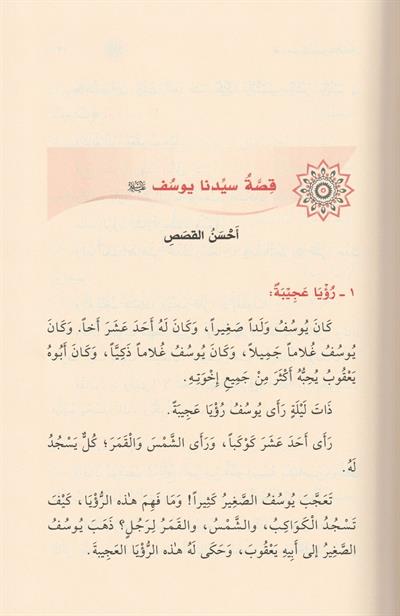 قِصَّةُ سيِّدنا يوسُف
أَحْسَنُ القصَصِ
١ ـ رُؤْيَا عَجِيْبَةٌ:
كَانَ يُوسُفُ وَلَداً صَغِيراً، وَكَانَ لَهُ أَحَدَ عَشَرَ أَخاً. وَكَانَ
يُوسُفُ غُلاماً جَمِيلاً، وَكَانَ يُوسُفُ غُلاماً ذَكِيَّاً، وَكَانَ أَبُوهُ
يَعْقُوبُ يُحِبُّهُ أَكْثَرَ مِنْ جَمِيعِ إِخْوَتِهِ.
ذَاتَ لَيْلَةٍ رَأَى يُوسُفُ رُؤْيَا عَجِيبَةً.
رَأَى أَحَدَ عَشَرَ كَوْكَباً، وَرَأَى الشَّمْسَ وَالْقَمَرَ؛ كُلٌّ يَسْجُدُ
لَهُ.
تَعَجَّبَ يُوسُفُ الصَّغِيرُ كَثِيراً! وَمَا فَهِمَ هٰذِهِ الرُّؤْيَا، كَيْفَ
تَسْجُدُ الْكَوَاكِبُ، والشَّمْسُ، والقَمَرُ لِرَجُلٍ؟ ذَهَبَ يُوسُفُ
الصَّغِيرُ إلى أَبِيهِ يَعْقُوبَ، وَحَكَى لَهُ هٰذِهِ الرُّؤْيَا العَجِيبَةَ.